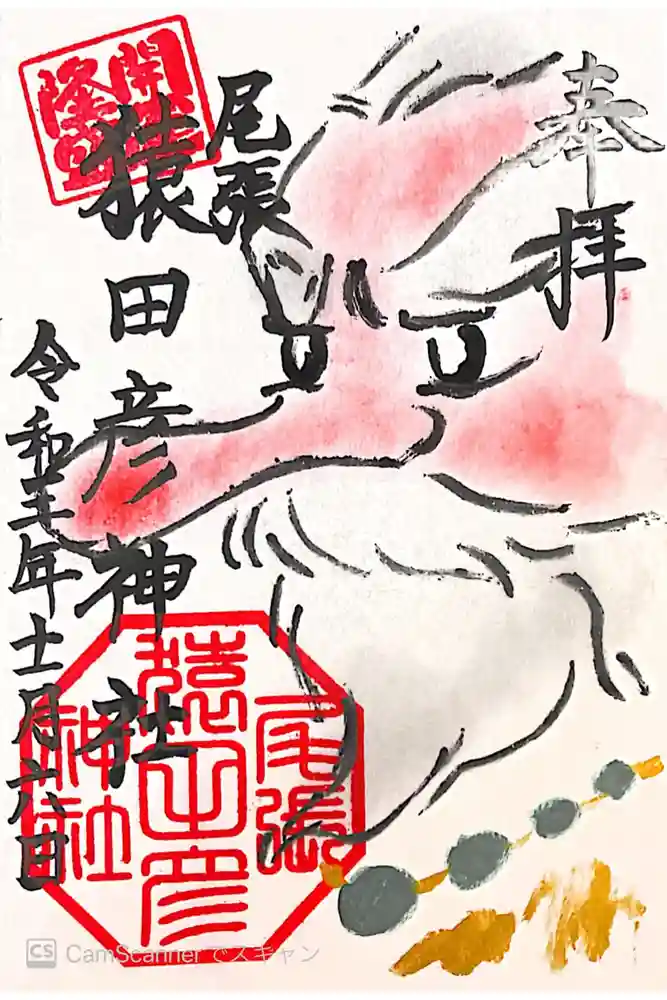 奉拝
尾張
猿田彦神社
令和五年十一月六日
開
隆
尾張
猿田彦
神社
CS CamScannerでスキャン